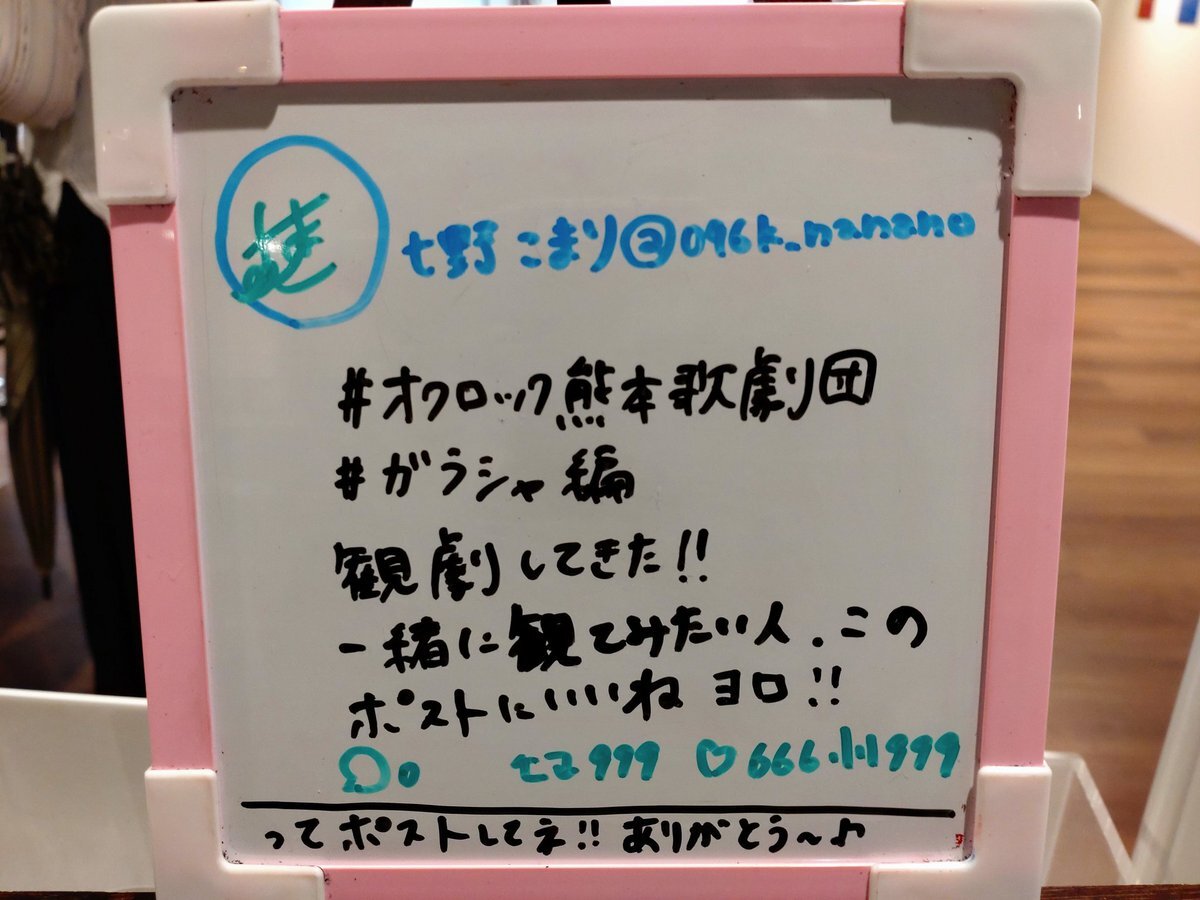 七野こまり@096k_nanano
#オクロック熊本歌劇団
#ガラシャ編
観劇してきた!!
一緒に観てみたい人、この
ポストにいいね ヨロ!!
0 999 ♡666 999
ってポストしてネ!! ありがとう〜♪